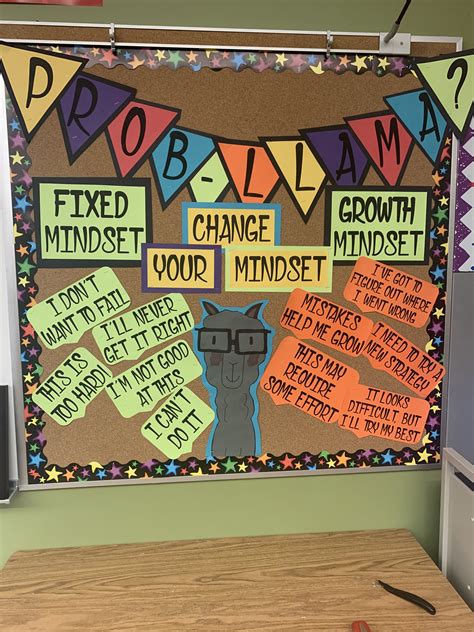 PROB-LLAMA?
FIXED
MINDSET
CHANGE
YOUR MINDSET
GROWTH
MINDSET
I DON'T
WANT TO FAIL
I'LL NEVER
GET IT RIGHT
THIS IS
TOO HARD!
I'M NOT GOOD
AT THIS
I CAN'T
DO IT
I'VE GOT TO
FIGURE OUT WHERE
I WENT WRONG
MISTAKES
HELP ME GROW
I NEED TO TRY A
NEW STRATEGY
THIS MAY
REQUIRE
SOME EFFORT
IT LOOKS
DIFFICULT BUT
I'LL TRY MY BEST